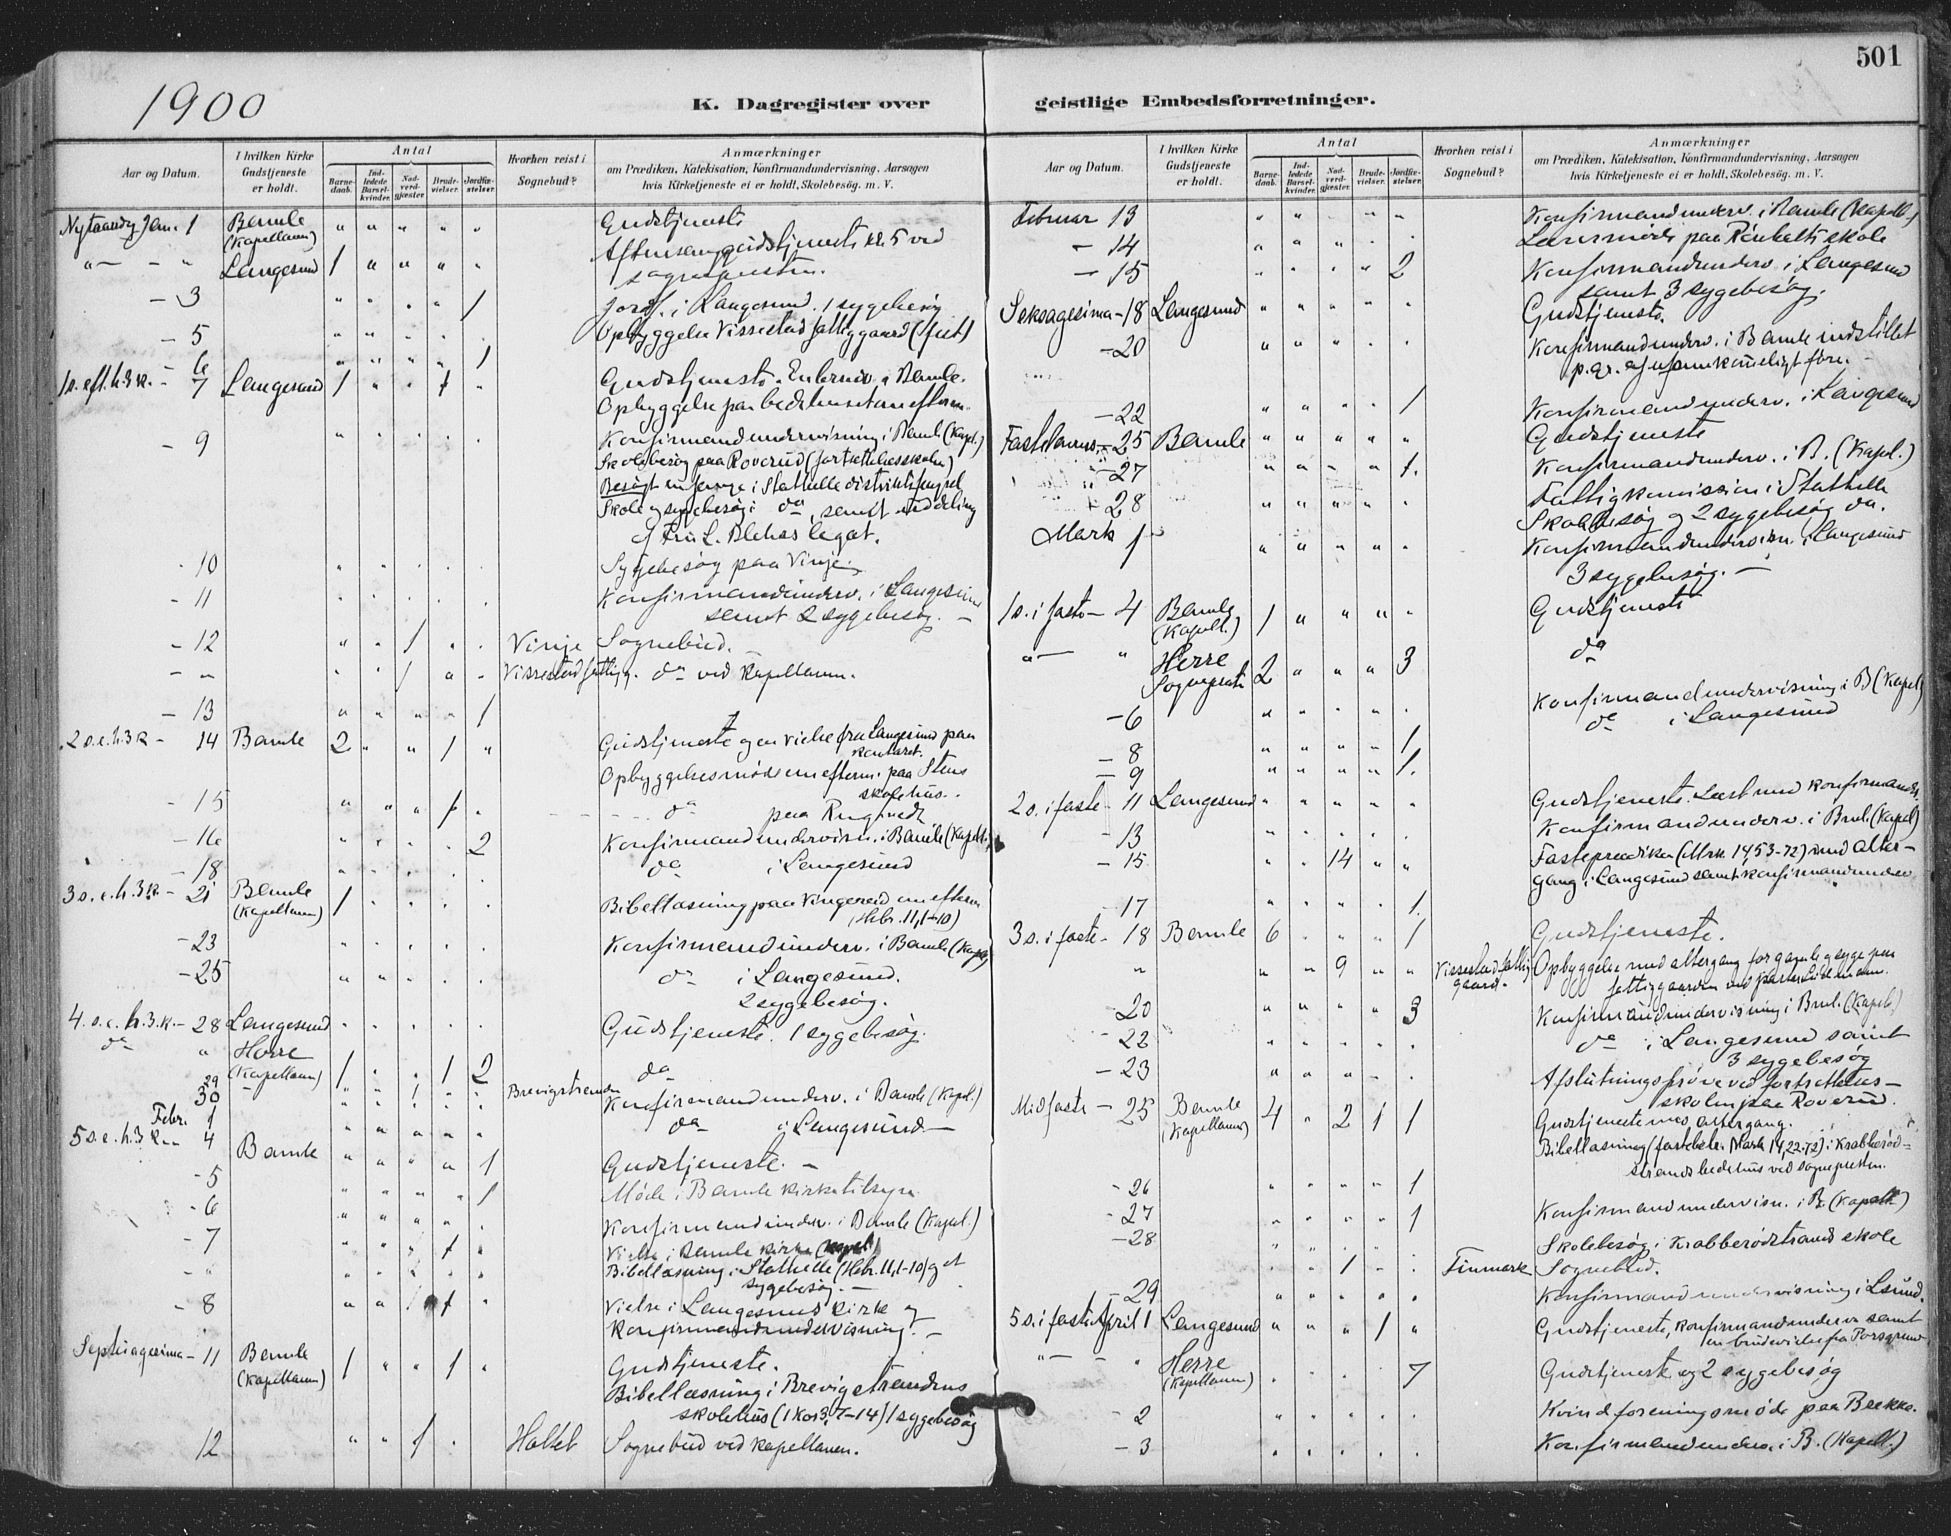 501
1900
K. Dagregister over
geistlige Embedsforretninger.
Aar og Datum.
I hvilken Kirke Gudstjeneste er holdt.
Antal
Barnedaab.
Indledede Barselkvinder.
Nadverdgjæster.
Brudevielser.
Jordfæstelser.
Hvorhen reist i Sognebud?
Anmærkninger
om Prædiken, Katekisation, Konfirmandundervisning, Aarsagen hvis Kirketjeneste ei er holdt, Skolebesøg, m. V.
Nytaarsdag Jan. 1 Bamle (Kapellanen) " " " " " Gudstjeneste
" — - " Langesund 1 " " " " Aftensanggudstjeneste kl. 5 ved sognepresten.
- 3 " " " " 1 Jordf. i Langesund. 1 sygebesøg
- 5 " " " " " Opbyggelse Vissestad fattiggaard
- 6 " " " " 1
1 s. eft. h. 3 K. - 7 Langesund 1 " " 1 " Gudstjeneste. i Bamle.
Opbyggelse paa bedehuset om efterm.
- 9 " " " " " Konfirmandundervisning i Bamle (Kapl.)
Skolebesøg paa Roverud (fortsættelsesskolen)
Besøgt en fange i Stathelle distriktsfængsel
Skole og sygebesøg i do, samt uddeling
af Frú L. Blehrs legat.
- 10 " " " " " Sygebesøg paa Vinje.
- 11 " " " " " Konfirmandunderv. i Langesund
samt 2 sygebesøg. —
- 12 " " 1 " " Vinje Sognebud.
- " " " 1 " " Vissestad fattigg. do ved Kapellanen.
- 13 " " " " 1
2 s. e. h. 3 K - 14 Bamle 2 " " 1 " Gudstjeneste og en vielse fra Langesund paa
kontoret.
Opbyggelsesmøde om efterm. paa Stens
skolehus.
- 15 " " " 1 " do paa Rugtvedt
- 16 " " " " 2 Konfirmandundervisn. i Bamle (Kapell.)
- 18 " " " " " do i Langesund
3 s. e. h. 3 K. - 21 Bamle (Kapellanen) 1 " " " " Bibellæsning paa om efterm
(Hebr. 11, 1-10)
- 23 " " " " " Konfirmandunderv. i Bamle (Kapl)
- 25 " " " " " do i Langesund.
2 sygebesøg.
4. s. e. h. 3. K. - 28 Langesund " " " " " Gudstjeneste. 1 sygebesøg.
do " Herre (Kapellanen) 1 " " 1 2 do
29 " " " 1 " " Brevigstranden
30 " " " " " Konfirmandunderv. i Bamle (Kapl.)
Febr. 1 " " " " " do i Langesund —
5 s. e. h. 3 K. - 4 Bamle " " " " 1 Gudstjeneste. —
- 5 " " " " 1 Møde i Bamle kirketilsyn.
- 6 " " " " " Konfirmandunderv. i Bamle (Kapl.)
- 7 " " " 1 " Vielse i Bamle kirke (Kapel)
- " " " " " " Bibellæsning i Stathelle (Hebr. 11, 1-10) og et
sygebesøg. —
- 8 " " " 1 " Vielse i Langesunds kirke og
Konfirmandundervisning. —
Septuagesima - 11 Bamle (Kapellanen) 1 " " 1 " Gudstjeneste.
Bibellæsning i Brevigstrandens
skolehus (1 Kor 3, 7-14) 1 sygebesøg
12 " " 1 " Holtet Sognebud ved Kapellanen.
Aar og Datum.
I hvilken Kirke Gudstjeneste er holdt.
Antal
Barnedaab.
Indledede Barselkvinder.
Nadverdgjæster.
Brudevielser.
Jordfæstelser.
Hvorhen reist i Sognebud?
Anmærkninger
om Prædiken, Katekisation, Konfirmandundervisning, Aarsagen hvis Kirketjeneste ei er holdt, Skolebesøg, m. V.
Februar 13 " " " " " Konfirmandunderv. i Bamle (Kapell.)
- 14 " " " " " Lærermøde paa Rønholts skole
- 15 " " " " 2 Konfirmandunderv. i Langesund
samt 3 sygebesøg.
Seksagesima - 18 Langesund " " " " " Gudstjeneste.
- 20 " " " " " Konfirmandunderv. i Bamle indstillet
p. gr. af ufremkommeligt føre. —
- 22 " " " " 1 Konfirmandunderv. i Langesund
Fastelavns. - 25 Bamle " " " " " Gudstjeneste
- 27 " " " " 1. Konfirmandunderv. i B. (Kapel.)
- 28 " " " " " Fattigkomission i Stathelle
Skolebesøg og 2 sygebesøg do.
Mark 1 " " " " " Konfirmandundervisn. i Langesund
3 sygebesøg. —
1 s. i faste - 4 Bamle (Kapell.) 1 " " " " Gudstjeneste
" — " Herre Sogneprest 2 " " " 3 do
- 6 " " " " " Konfirmandundervisning i B (Kapel)
- 8 " " " " 1 do i Langesund
- 9 " " " " 1.
2 s. i faste - 11 Langesund " " " " " Gudstjeneste. Læst med konfirmander.
- 13 " " " " " Konfirmandunderv. i Bml. (Kapel)
- 15 " " 14 " " Fasteprædiken (Mrk. 14, 53-72) med alter-
gang i Langesund samt konfirmandunderv
- 17 " " " " 1.
3 s. i faste - 18 Bamle 6 " " " 1 Gudstjeneste.
" " " 9 " " Vissestad fattiggaard. Opbyggelse med altergang for gamle og syge paa
fattiggaarden ved pastor
- 20 " " " " 3 Konfirmandundervisning i Bml. (Kapel.)
- 22 " " " " " do i Langesund samt
3 sygebesøg
- 23 " " " " " Afslutningsprøve ved fortsættelses-
skolen paa Roverud.
Midfaste - 25 Bamle (Kapellanen) 4 " 2 1 1 Gudstjeneste med altergang.
Bibellæsning (fastetekst. Mark 14, 22-72) i Krabberød-
strands bedehus ved sognepresten.
- 26 " " " " 1
- 27 " " " " 1 Konfirmandundervisn. i B. (Kapell.)
- 28 " " " " " Skolebesøg i Krabberødstrand skole
" " 1 " " Finmark Sognebud.
- 29 " " " " " Konfirmandundervisning i Lsund.
5 s. i faste April 1 Langesund " " " 1 " Gudstjeneste, konfirmandunderv. samt
en brudevielse fra Porsgrund
" — - " Herre (Kapellanen) " " " " 7 Gudstjeneste og 2 sygebesøg
- 2 " " " " " Kvindforeningsmøde paa Brekke.
- 3 " " " " " Konfirmandunderv. i B. (Kapell.)